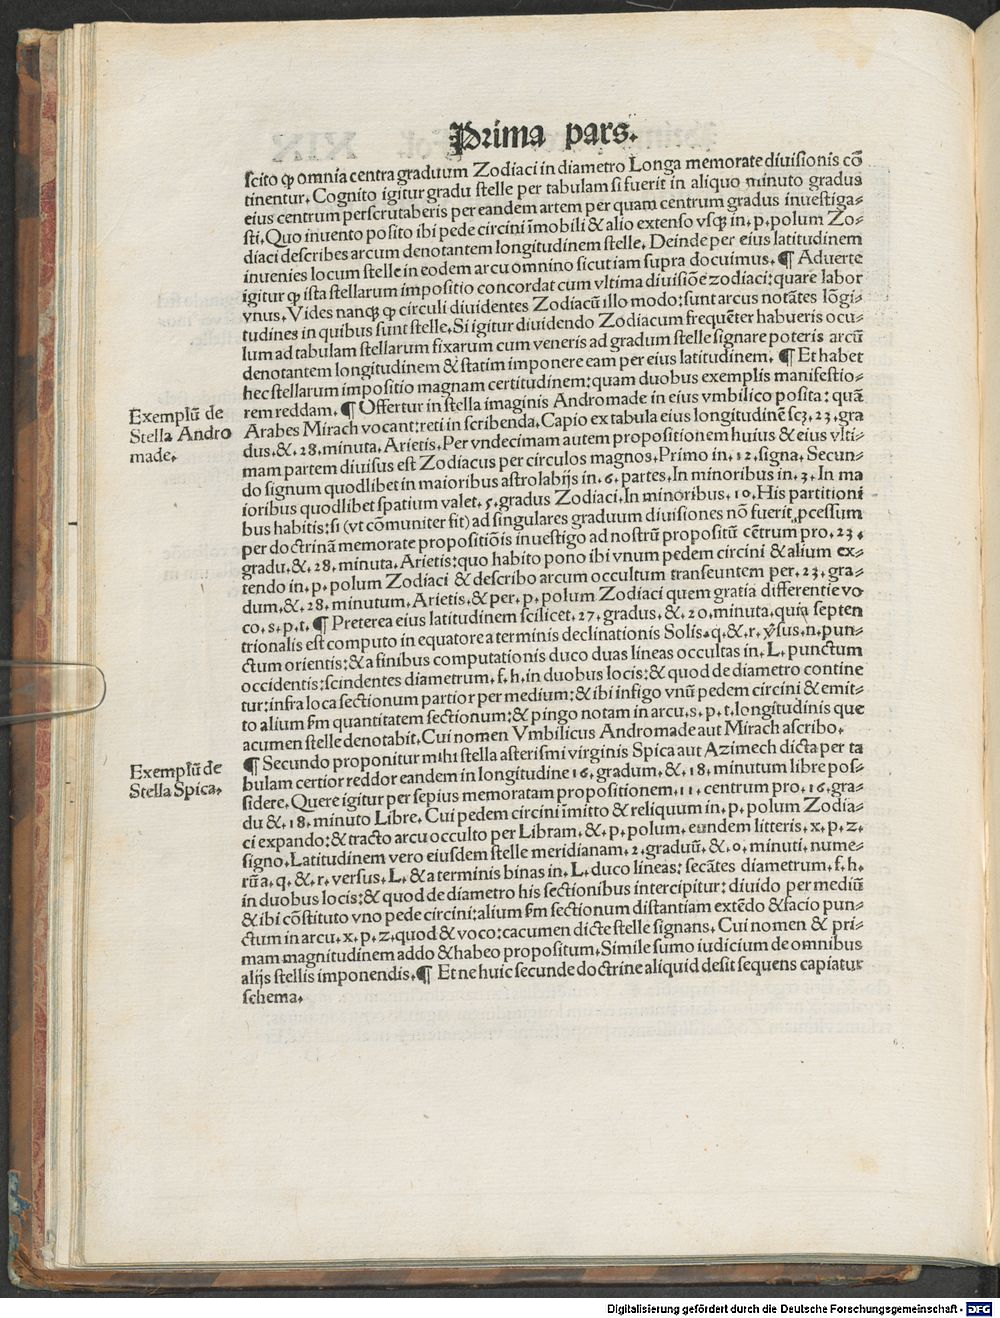 Prima pars.
scito ꝙ omnia centra graduum Zodiaci in diametro Longa memorate diuisionis cõ
tinentur. Cognito igitur gradu stelle per tabulam si fuerit in aliquo minuto gradus
eius centrum perscrutaberis per eandem artem per quam centrum gradus inuestiga⸗
sti. Quo inuento posito ibi pede circini ĩmobili & alio extenso vsqꝫ in. p. polum Zo⸗
diaci describes arcum denotantem longitudinem stelle. Deinde per eius latitudinem
inuenies locum stelle in eodem arcu omnino sicut iam supra docuimus. ¶ Aduerte
igitur ꝙ ista stellarum impositio concordat cum vltima diuisiõe zodiaci: quare labor
vnus. Vides nanqꝫ ꝙ circuli diuidentes Zodiacũ illo modo: sunt arcus notãtes lõgi⸗
tudines in quibus sunt stelle. Si igitur diuidendo Zodiacum frequẽter habueris ocu⸗
lum ad tabulam stellarum fixarum cum veneris ad gradum stelle signare poteris arcũ
denotantem longitudinem & statim imponere eam per eius latitudinem. ¶ Et habet
hec stellarum impositio magnam certitudinem: quam duobus exemplis manifestio⸗
rem reddam. ¶ Offertur in stella imaginis Andromade in eius vmbilico posita: quã
Exemplũ de
Stella Andro
made.
Arabes Mirach vocant: reti inscribenda. Capio ex tabula eius longitudinẽ scꝫ. 23. gra
dus. &. 28. minuta. Arietis. Per vndecimam autem propositionem huius & eius vlti⸗
mam partem diuisus est Zodiacus per circulos magnos. Primo in. 12. signa. Secun⸗
do signum quodlibet in maioribus astrolabijs in. 6. partes. In minoribus in. 3. In ma
ioribus quodlibet spatium valet. 5. gradus Zodiaci. In minoribus. 10. His partitioni
bus habitis: si (vt cõmuniter fit) ad singulares graduum diuisiones nõ fuerit ꝓcessum
per doctrinã memorate propositiõis inuestigo ad nostrũ propositũ cẽtrum pro. 23.
gradu. &. 28. minuta. Arietis: quo habito pono ibi vnum pedem circini & alium ex⸗
tendo in. p. polum Zodiaci & describo arcum occultum transeuntem per. 23. gra⸗
dum. &. 28. minutum. Arietis. & per. p. polum Zodiaci quem gratia differentie vo
co. s. p. t. ¶ Preterea eius latitudinem scilicet. 27. gradus. &. 20. minuta. quia septen
trionalis est computo in equatore a terminis declinationis Solis. q. & . r. ꝟsus. n. pun⸗
ctum orientis: & a finibus computationis duco duas lineas occultas in. L. punctum
occidentis: scindentes diametrum. f. h. in duobus locis: & quod de diametro contine
tur: infra loca sectionum partior per medium: & ibi infigo vnũ pedem circini & emit⸗
to alium ẜm quantitatem sectionum: & pingo notam in arcu. s. p. t. longitudinis que
acumen stelle denotabit. Cui nomen Vmbilicus Andromade aut Mirach ascribo.
¶ Secundo proponitur mihi stella asterismi virginis Spica aut Azimech dicta per ta
Exemplũ de
Stella Spica.
bulam certior reddor eandem in longitudine 16. gradum. &. 18. minutum libre pos⸗
sidere. Quere igitur per sepius memoratam propositionem. 11. centrum pro. 16. gra⸗
du &. 18. minuto Libre. Cui pedem circini ĩmitto & reliquum in. p. polum Zodia⸗
ci expando: & tracto arcu occulto per Libram. &. p. polum. eundem litteris. x. p. z.
signo. Latitudinem vero eiusdem stelle meridianam. 2. graduũ. &. 0. minuti. nume⸗
rũ a. q. &. r. versus. L. & a terminis binas in. L. duco lineas: secãtes diametrum. f. h.
in duobus locis: & quod de diametro his sectionibus intercipitur: diuido per mediũ
& ibi cõstituto vno pede circini: alium ẜm sectionum distantiam extẽdo & facio pun⸗
ctum in arcu. x. p. z. quod & voco: cacumen dicte stelle signans. Cui nomen & pri⸗
mam magnitudinem addo & habeo propositum. Simile sumo iudicium de omnibus
alijs stellis imponendis. ¶ Et ne huic secunde doctrine aliquid desit sequens capiatur
schema.
Digitalisierung gefördert durch die Deutsche Forschungsgemeinschaft - DFG